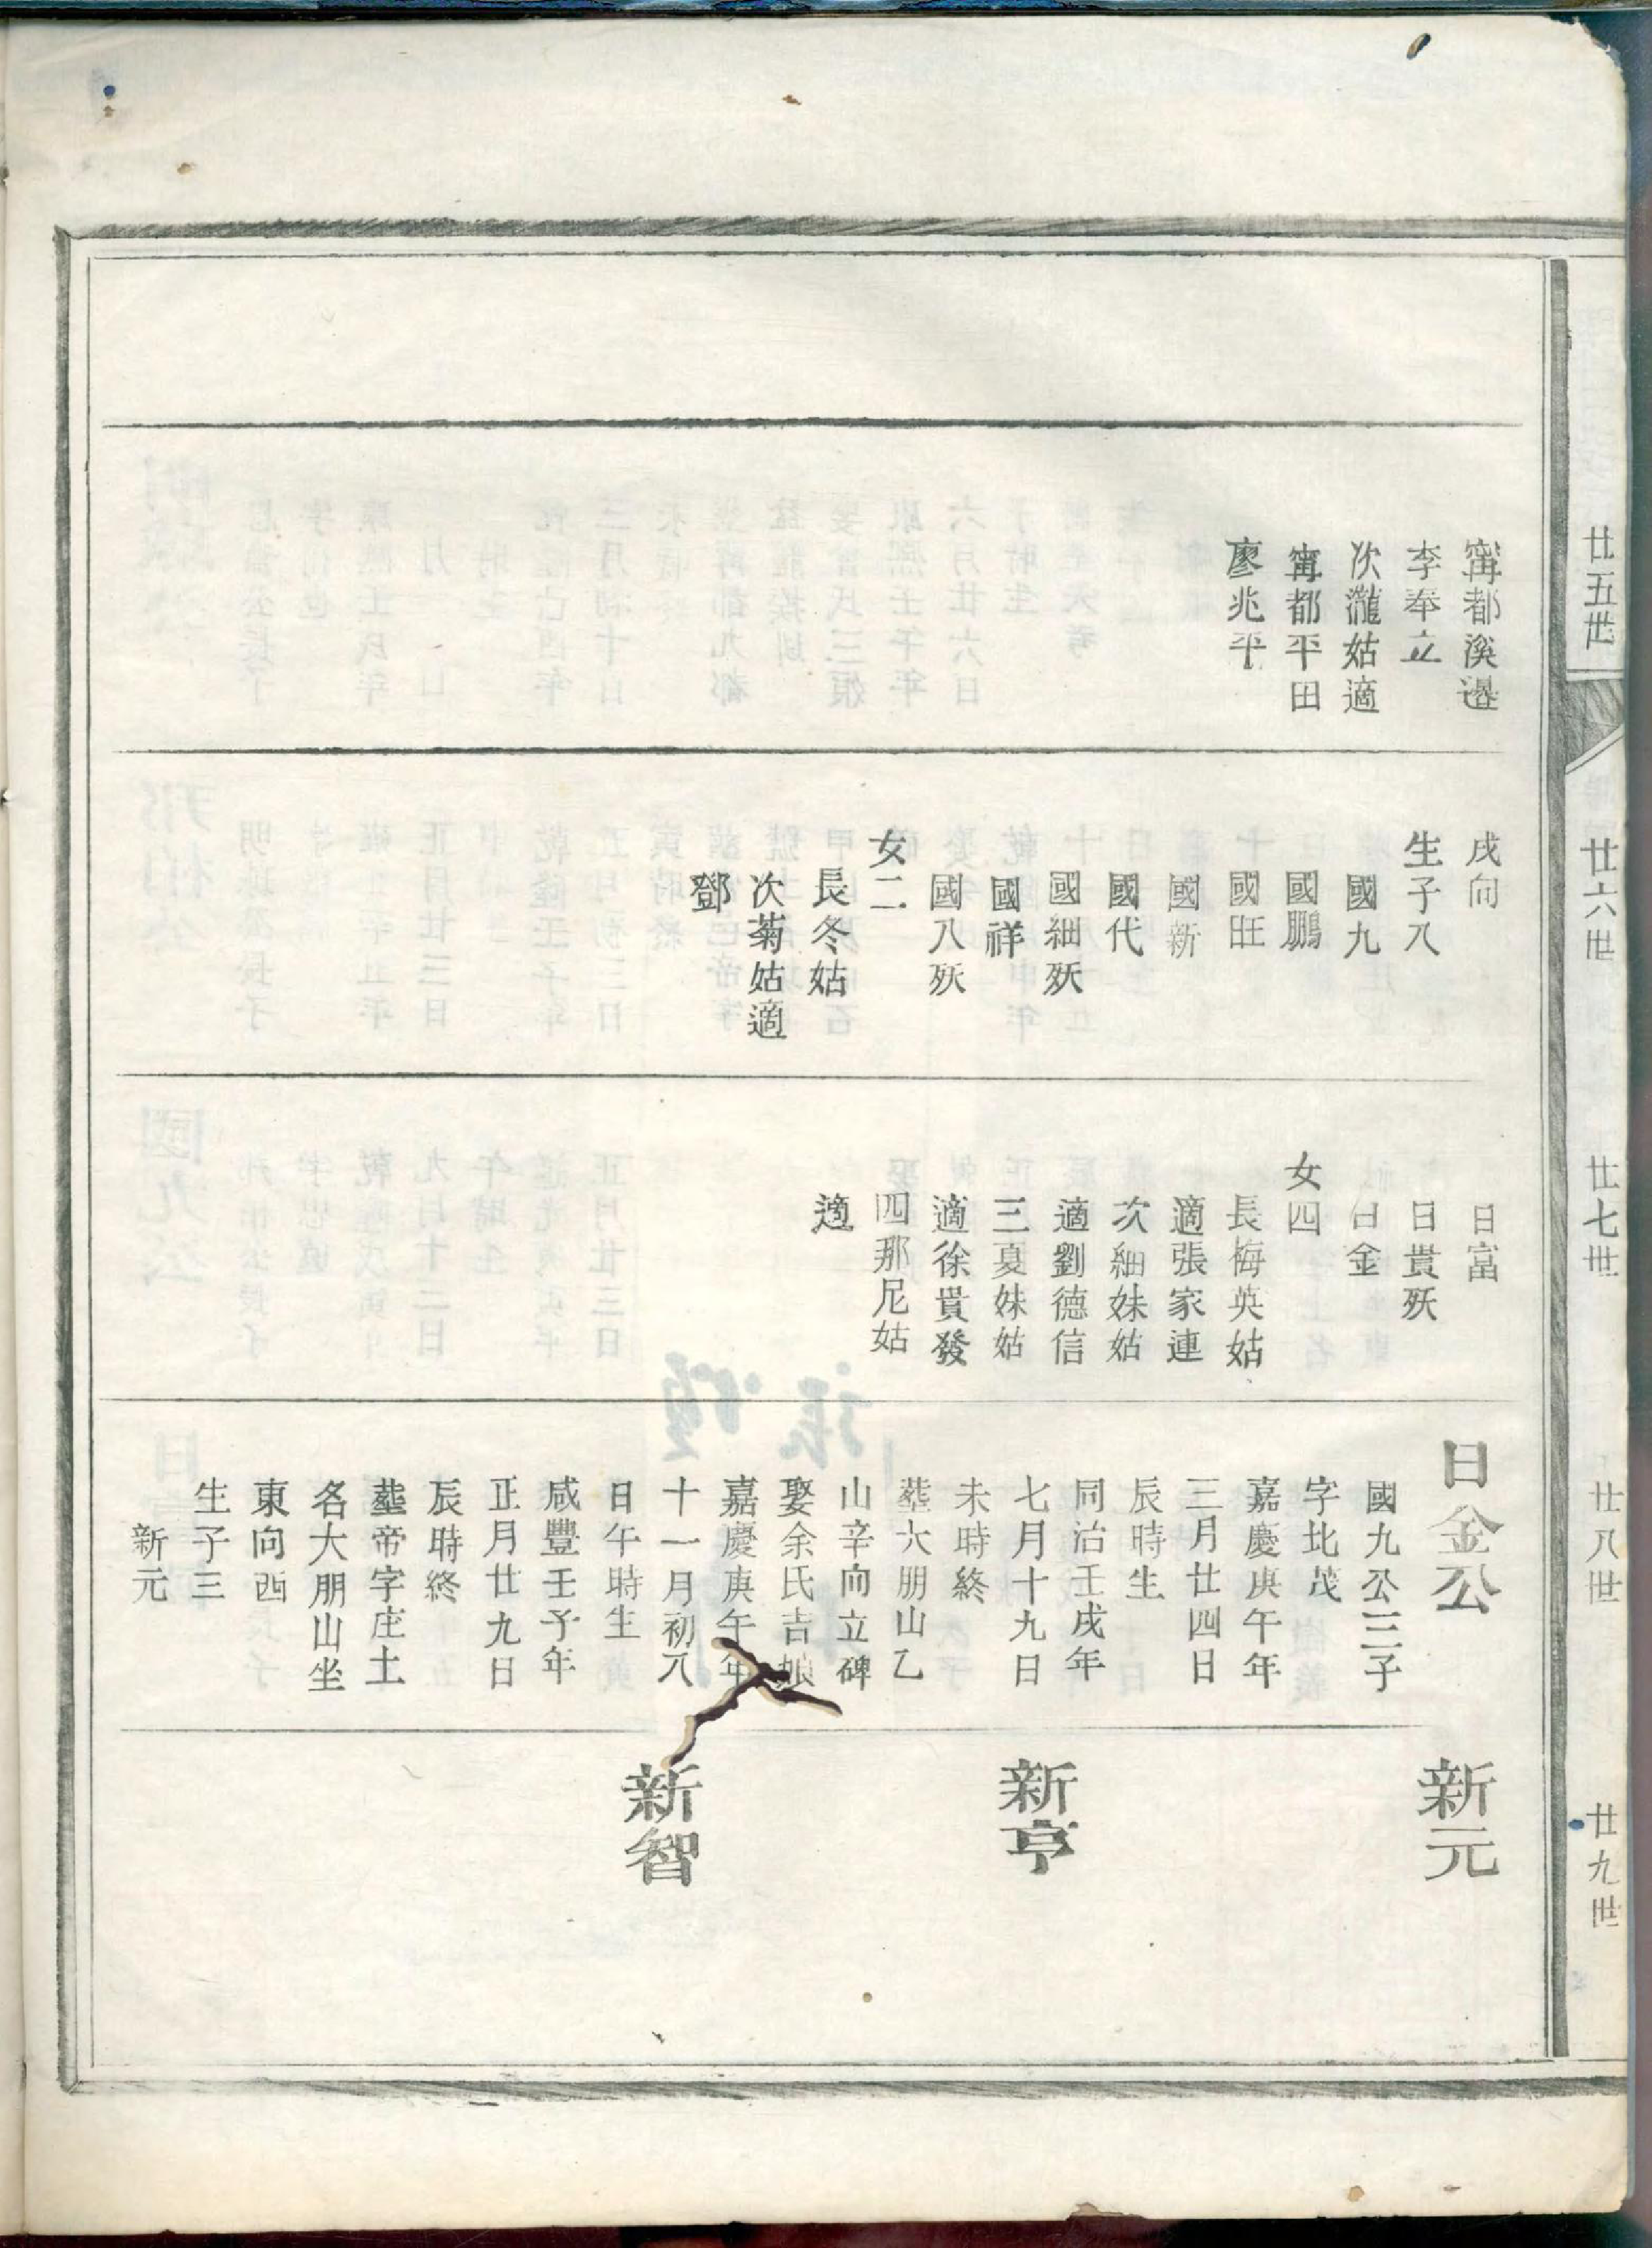 廿五世
廿六世
廿七世
廿八世
廿九世
甯都溪邊
李奉立
次瀧姑適
甯都平田
廖兆平
戌向
生子八
國九
國鵬
國旺
國新
國代
國細殀
國祥
國八殀
女二
長冬姑
次菊姑適
鄧
日富
日貴殀
日金
女四
長梅英姑
適張家連
次細妹姑
適劉德信
三夏妹姑
適徐貴發
四那尼姑
適
日金公
國九公三子
字北茂
嘉慶庚午年
三月廿四日
辰時生
同治壬戌年
七月十九日
未時終
塟大朋山乙
山辛向立碑
娶余氏吉娘
嘉慶庚午年
十一月初八
日午時生
咸豐壬子年
正月廿九日
辰時終
塟帝字庄土
名大朋山坐
東向西
生子三
新元
新元
新亨
新智